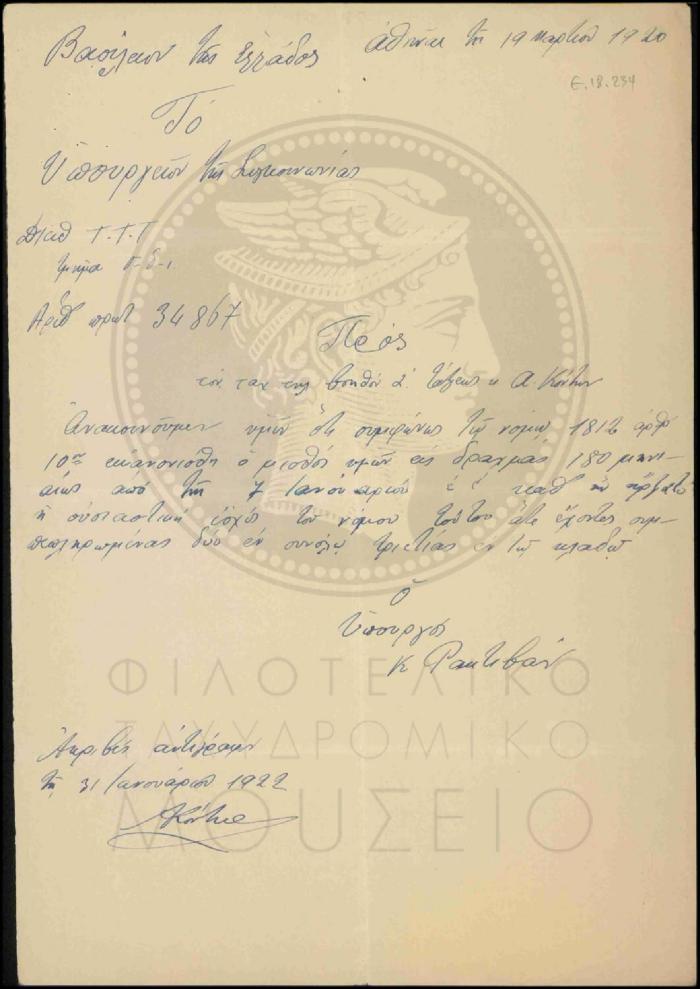 Βασίλειον της Ελλάδος
Αθήναι τη 19 Μαρτίου 1920
Ε.18.234
Τό
Υπουργείον της Συγκοινωνίας
Διευθ Τ.Τ.Τ
τμήμα
Αριθ πρωτ 34867
Πρός
τον ταχ τηλ βοηθόν α΄ τάξεως κ Α. Κόντην
Ανακοινούμεν υμίν ότι συμφώνως τω νόμω 1812 άρθρ
10ον εκανονίσθη ο μισθός υμών εις δραχμάς 180 μηνι-
αίως από της 7 Ιανουαρίου ε έ καθ ην ήρξατο
η ουσιαστική ισχύς του νόμου τούτου άτε έχοντος συμ-
πεπληρωμένας δύο εν συνόλω τριετίας εν τω κλάδω
Ο
Υπουργός
Κ Ρακτιβάν
Ακριβές αντίγραφον
τη 31 Ιανουαρίου 1922
ΑΚόντης
ΦΙΛΟΤΕΛΙΚΟ
ΤΑΧΥΔΡΟΜΙΚΟ
ΜΟΥΣΕΙΟ